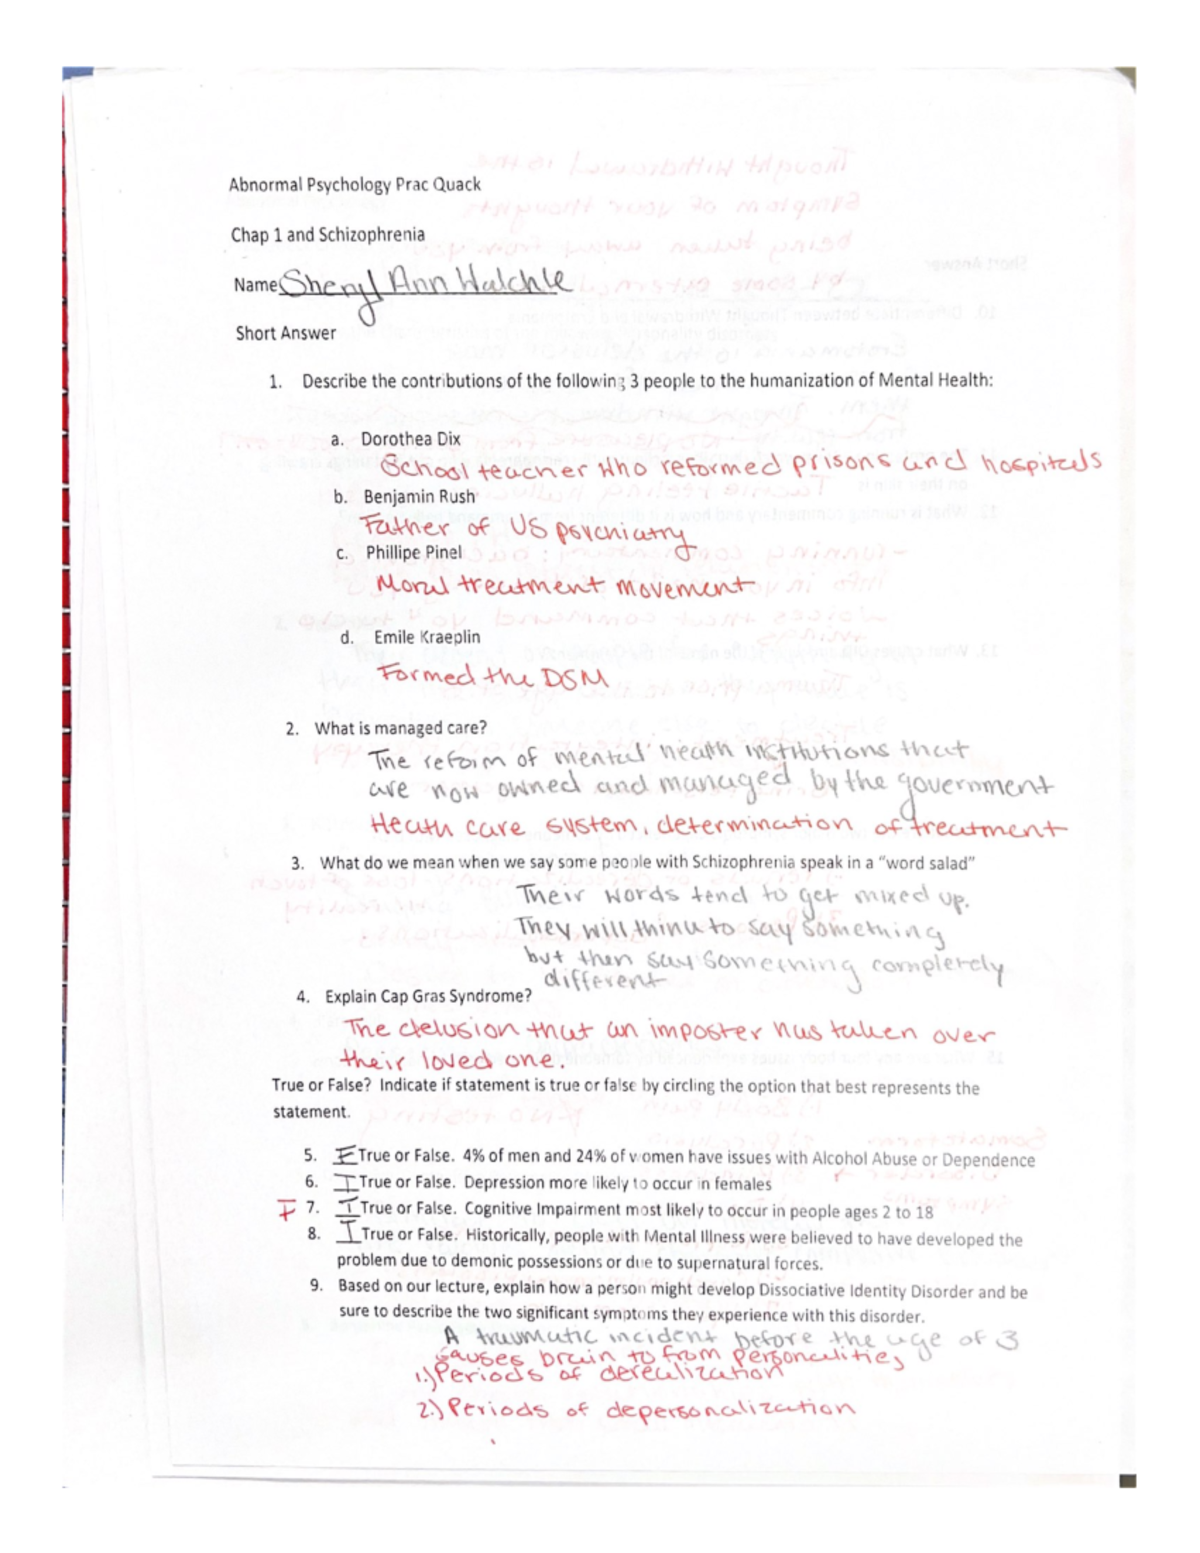 Abnormal Psychology Prac Quack
Chap 1 and Schizophrenia
Name Sheryl Ann Walchle
Short Answer
1. Describe the contributions of the following 3 people to the humanization of Mental Health:
a. Dorothea Dix
School teacher who reformed prisons and hospitals
b. Benjamin Rush
Father of US psychiatry
c. Phillipe Pinel
Moral treatment movement
d. Emile Kraeplin
Formed the DSM
2. What is managed care?
The reform of mental health institutions that
are now owned and managed by the government
Heath care system, determination of treatment
3. What do we mean when we say some people with Schizophrenia speak in a "word salad"
Their words tend to get mixed up.
They will think to say something
but then say something completely
different
4. Explain Cap Gras Syndrome?
The delusion that an imposter has taken over
their loved one.
True or False? Indicate if statement is true or false by circling the option that best represents the
statement.
5. F True or False. 4% of men and 24% of women have issues with Alcohol Abuse or Dependence
6. T True or False. Depression more likely to occur in females
F 7. T True or False. Cognitive Impairment most likely to occur in people ages 2 to 18
8. T True or False. Historically, people with Mental Illness were believed to have developed the
problem due to demonic possessions or due to supernatural forces.
9. Based on our lecture, explain how a person might develop Dissociative Identity Disorder and be
sure to describe the two significant symptoms they experience with this disorder.
A traumatic incident before the age of 3
causes brain to from personalities
1.) Periods of derealization
2.) Periods of depersonalization